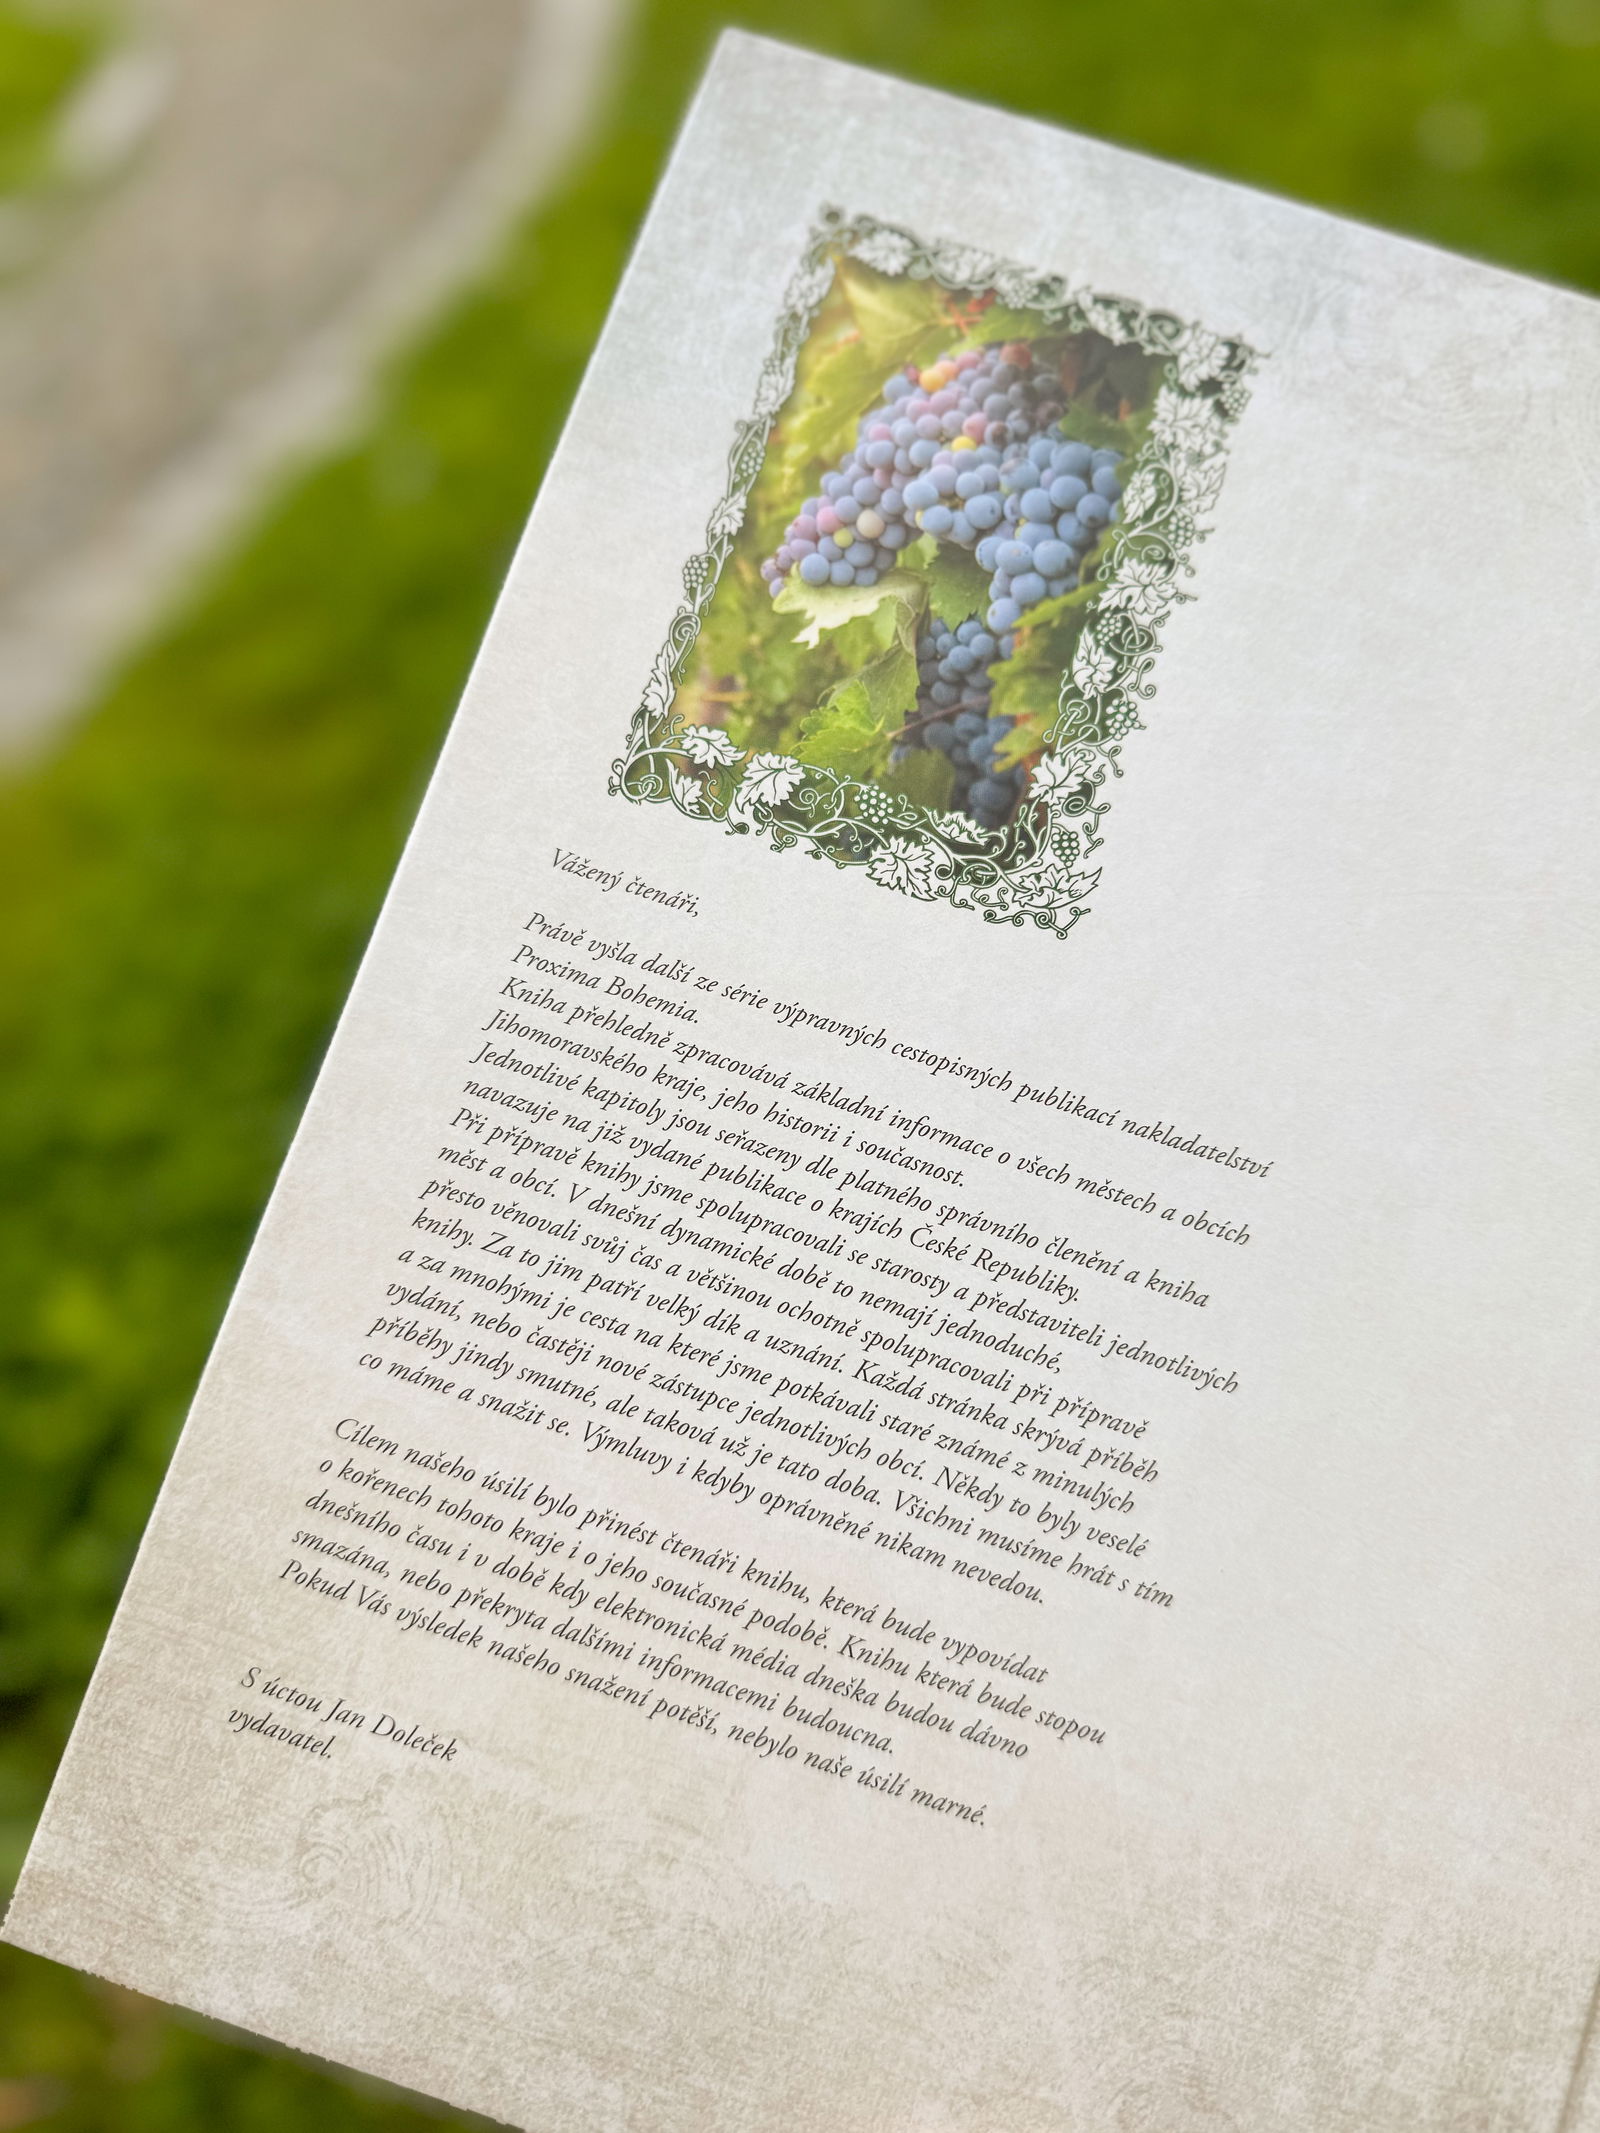 Vážený čtenáři,
Právě vyšla další ze série výpravných cestopisných publikací nakladatelství
Proxima Bohemia.
Kniha přehledně zpracovává základní informace o všech městech a obcích
Jihomoravského kraje, jeho historii i současnost.
Jednotlivé kapitoly jsou seřazeny dle platného správního členění a kniha
navazuje na již vydané publikace o krajích České Republiky.
Při přípravě knihy jsme spolupracovali se starosty a představiteli jednotlivých
měst a obcí. V dnešní dynamické době to nemají jednoduché,
přesto věnovali svůj čas a většinou ochotně spolupracovali při přípravě
knihy. Za to jim patří velký dík a uznání. Každá stránka skrývá příběh
a za mnohými je cesta na které jsme potkávali staré známé z minulých
vydání, nebo častěji nové zástupce jednotlivých obcí. Někdy to byly veselé
příběhy jindy smutné, ale taková už je tato doba. Všichni musíme hrát s tím
co máme a snažit se. Výmluvy i kdyby oprávněné nikam nevedou.
Cílem našeho úsilí bylo přinést čtenáři knihu, která bude vypovídat
o kořenech tohoto kraje i o jeho současné podobě. Knihu která bude stopou
dnešního času i v době kdy elektronická média dneška budou dávno
smazána, nebo překryta dalšími informacemi budoucna.
Pokud Vás výsledek našeho snažení potěší, nebylo naše úsilí marné.
S úctou Jan Doleček
vydavatel.